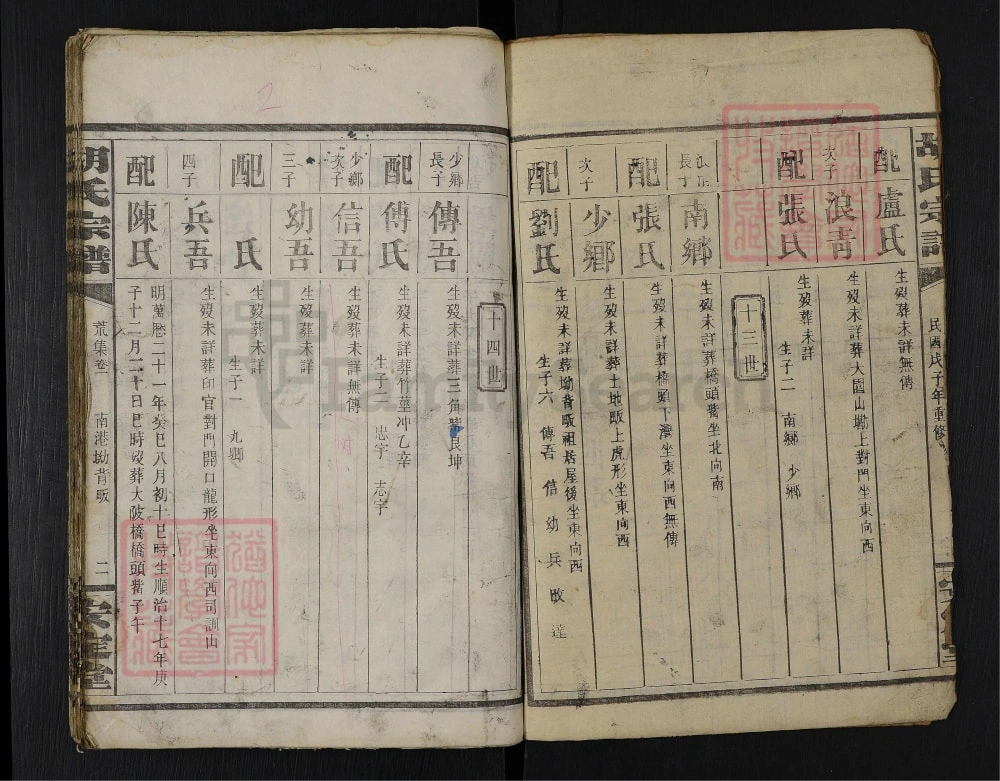 胡氏宗譜
民國戊子年重修
配 盧氏 生歿葬未詳無傳
次子 浪青 生歿未詳葬大圍山坳上對門坐東向西
配 張氏 生歿葬未詳
生子二 南鄉 少鄉
十三世
長子 南鄉 生歿未詳葬橋頭觜坐北向南
配 張氏 生歿未詳葬橋頭下灣坐東向西無傳
次子 少鄉 生歿未詳葬土地畈上虎形坐東向西
配 劉氏 生歿未詳葬坳背畈祖居屋後坐東向西
生子六 傳吾 信 幼 兵 敗 達
十四世
少鄉長子 傳吾 生歿未詳葬三角塘艮坤
配 傅氏 生歿未詳葬竹葉冲乙辛
生子二 忠宇 志宇
少鄉次子 信吾 生歿葬未詳無傳
三子 幼吾 生歿葬未詳
配 氏 生歿葬未詳
生子一 九鄉
四子 兵吾 生歿未詳葬印官對門開口龍形坐東向西司訓山
配 陳氏 明萬曆二十一年癸巳八月初十巳時生順治十七年庚
子十二月二十日巳時歿葬大陂橋橋頭觜子午
胡氏宗譜
荒集卷一 南港坳背畈 二
安定堂
2